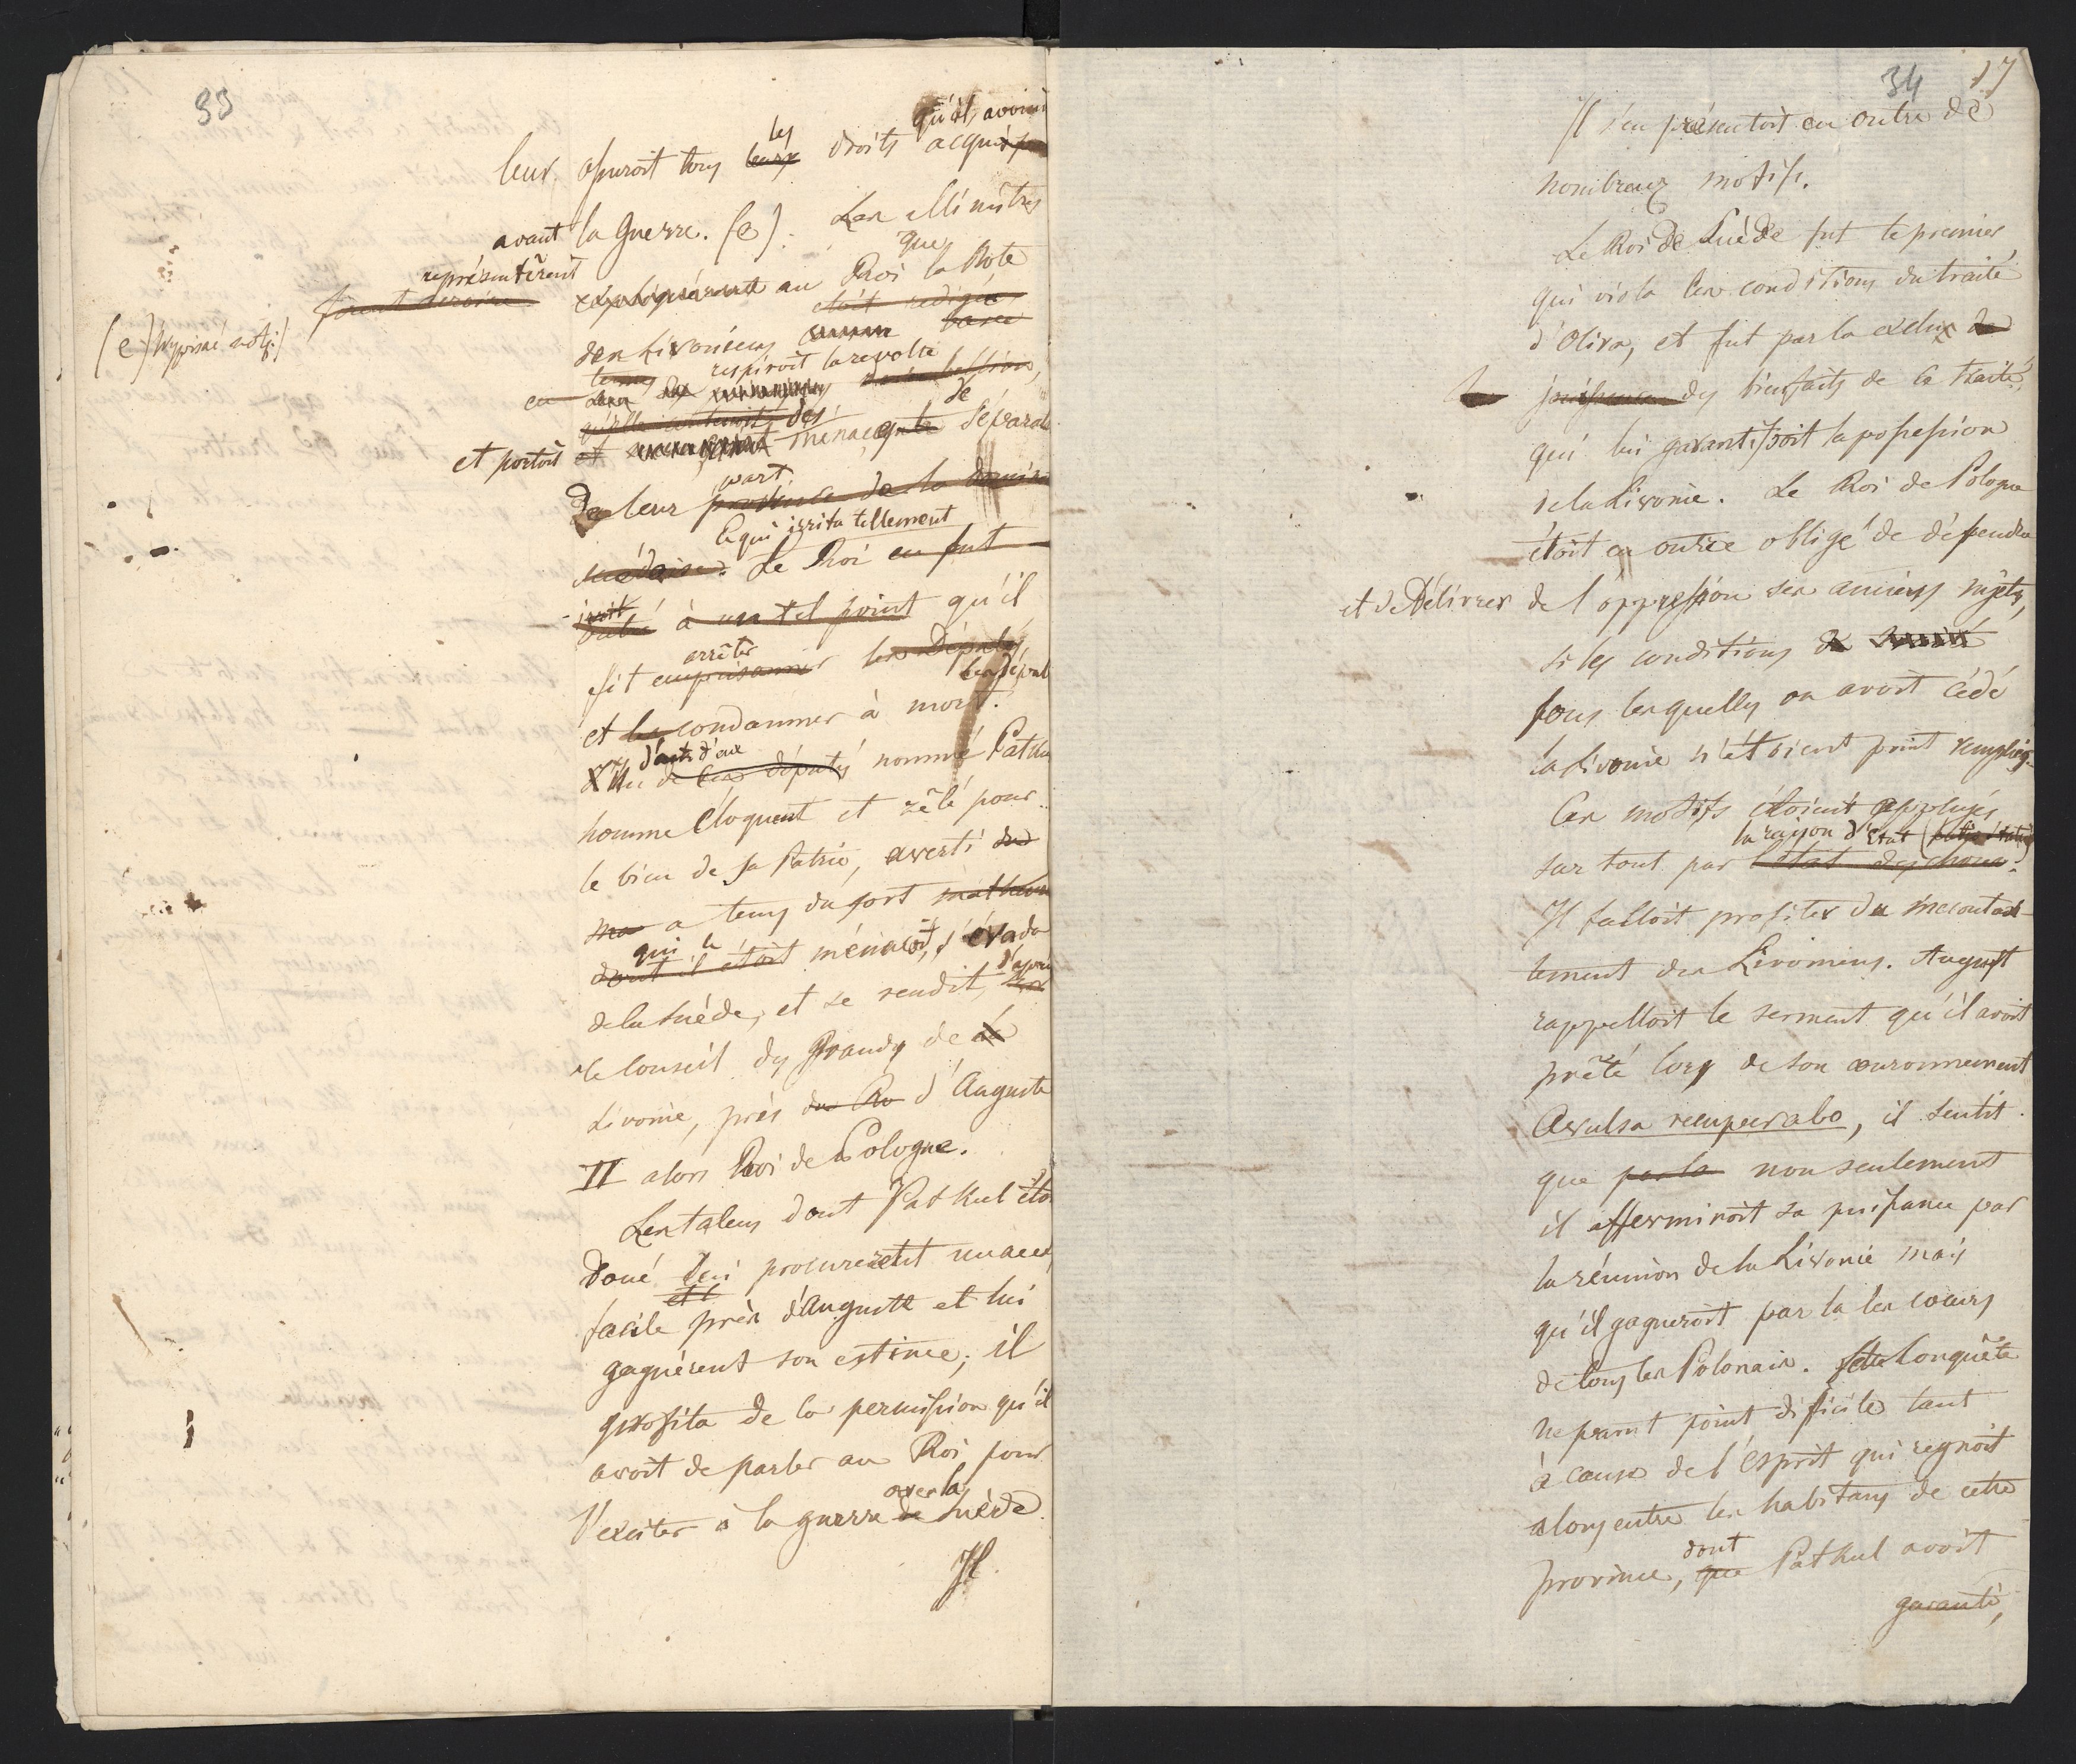 33
qu'ils avoient
leur assuroit tous leurs les droits acquis
avant la Guerre. (e). Les Ministres
représentèrent
firent au Roi que la Note
était redigée
(e) Wypisać notę
des Livoniens
respiroit la revolte
en
et portoit menace de séparat
de leur part
Ce qui irrita tellement
suédoise. Le Roi en fut
irrité à un tel point qu'il
arrêter
fit emprisonner les Députés
les députés
et les condamner à mort.
d'entr'eux
L'un de ces députés nommé Patkul
homme éloquent et zêlé pour
le bien de sa Patrie, averti
a tems du sort malheur
qui le
dont il étoit menacoit, s'évada
d'après
de la Suède, et se rendit,
le conseil des Grands de la
Livonie, près du Roi d'Auguste
II alors Roi de Pologne.
Les talens dont Patkul éto
doué lui procurerent un acces
facile près d'Auguste et lui
gagnèrent son estime; il
profita de la permission qu'il
avoit de parler au Roi pour
avec la
l'exciter à la guerre de Suède.
Il
34 17
Il s'en présentoit en outre de
nombreux motifs.
Le Roi de Suède fut le premier
qui viola les conditions du traité
d'Oliva, et fut par la exclu de
la jouissance des bienfaits de ce traité,
qui lui garantissoit la possession
de la Livonie. Le Roi de Pologne
étoit en outre obligé de défendre
et de délivrer de l'oppression ses anciens sujets,
si les conditions
sous lesquelles on avoit cédé
la Livonie n'étoient point remplies.
Ces motifs étoient appuyés
la raison d'Etat
sur tout par l'état des choses.
Il falloit profiter du mecontan-
tement des Livoniens. August
rappelloit le serment qu'il avoit
prêté lors de son couronnement
Avulsa recuperabo, il sentit
que par la non seulement
il affermiroit sa puissance par
la réunion de la Livonie mais
qu'il gagneroit par la les coeurs
de tous les Polonais. Cette Conquête
ne parut point dificile tant
à cause de l'esprit qui regnoit
alors entre les habitans de cette
dont
province, que Patkul avoit
garanti,